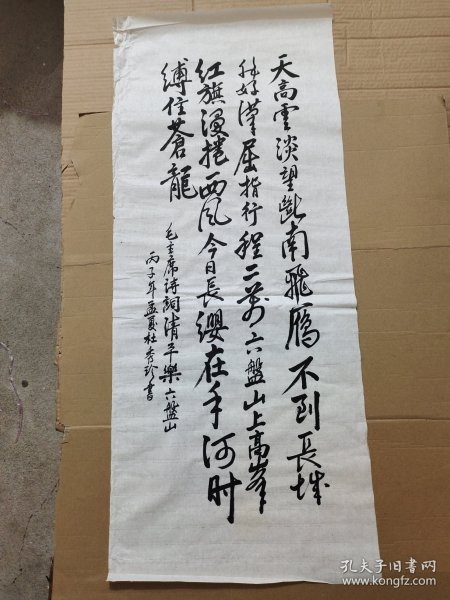 天高雲淡望斷南飛雁不到長城
非好漢屈指行程二萬六盤山上高峯
红旗漫捲西风今日長纓在手何时
縛住蒼龍
毛主席诗詞清平樂六盤山
丙子年孟夏杜秀珍書
孔夫子旧书网
www.kongfz.com